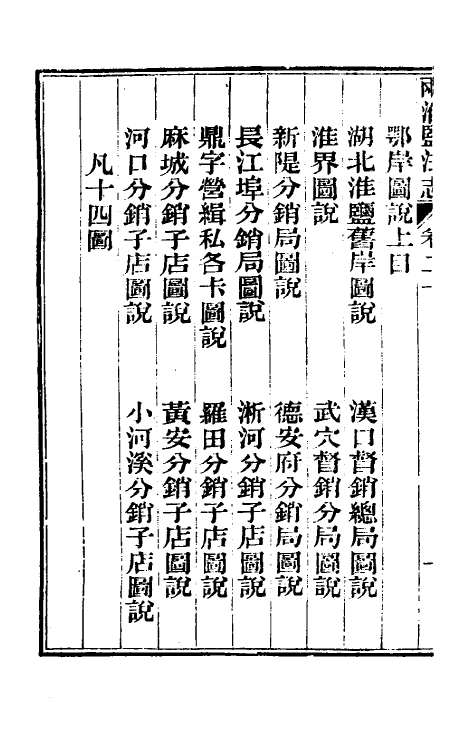 兩淮鹽法志 卷二十
鄂岸圖說上目
湖北淮鹽舊岸圖說 漢口督銷總局圖說
淮界圖說 武穴督銷分局圖說
新隄分銷局圖說 德安府分銷局圖說
長江埠分銷局圖說 淅河分銷子店圖說
鼎字營緝私各卡圖說 羅田分銷子店圖說
麻城分銷子店圖說 黃安分銷子店圖說
河口分銷子店圖說 小河溪分銷子店圖說
凡十四圖